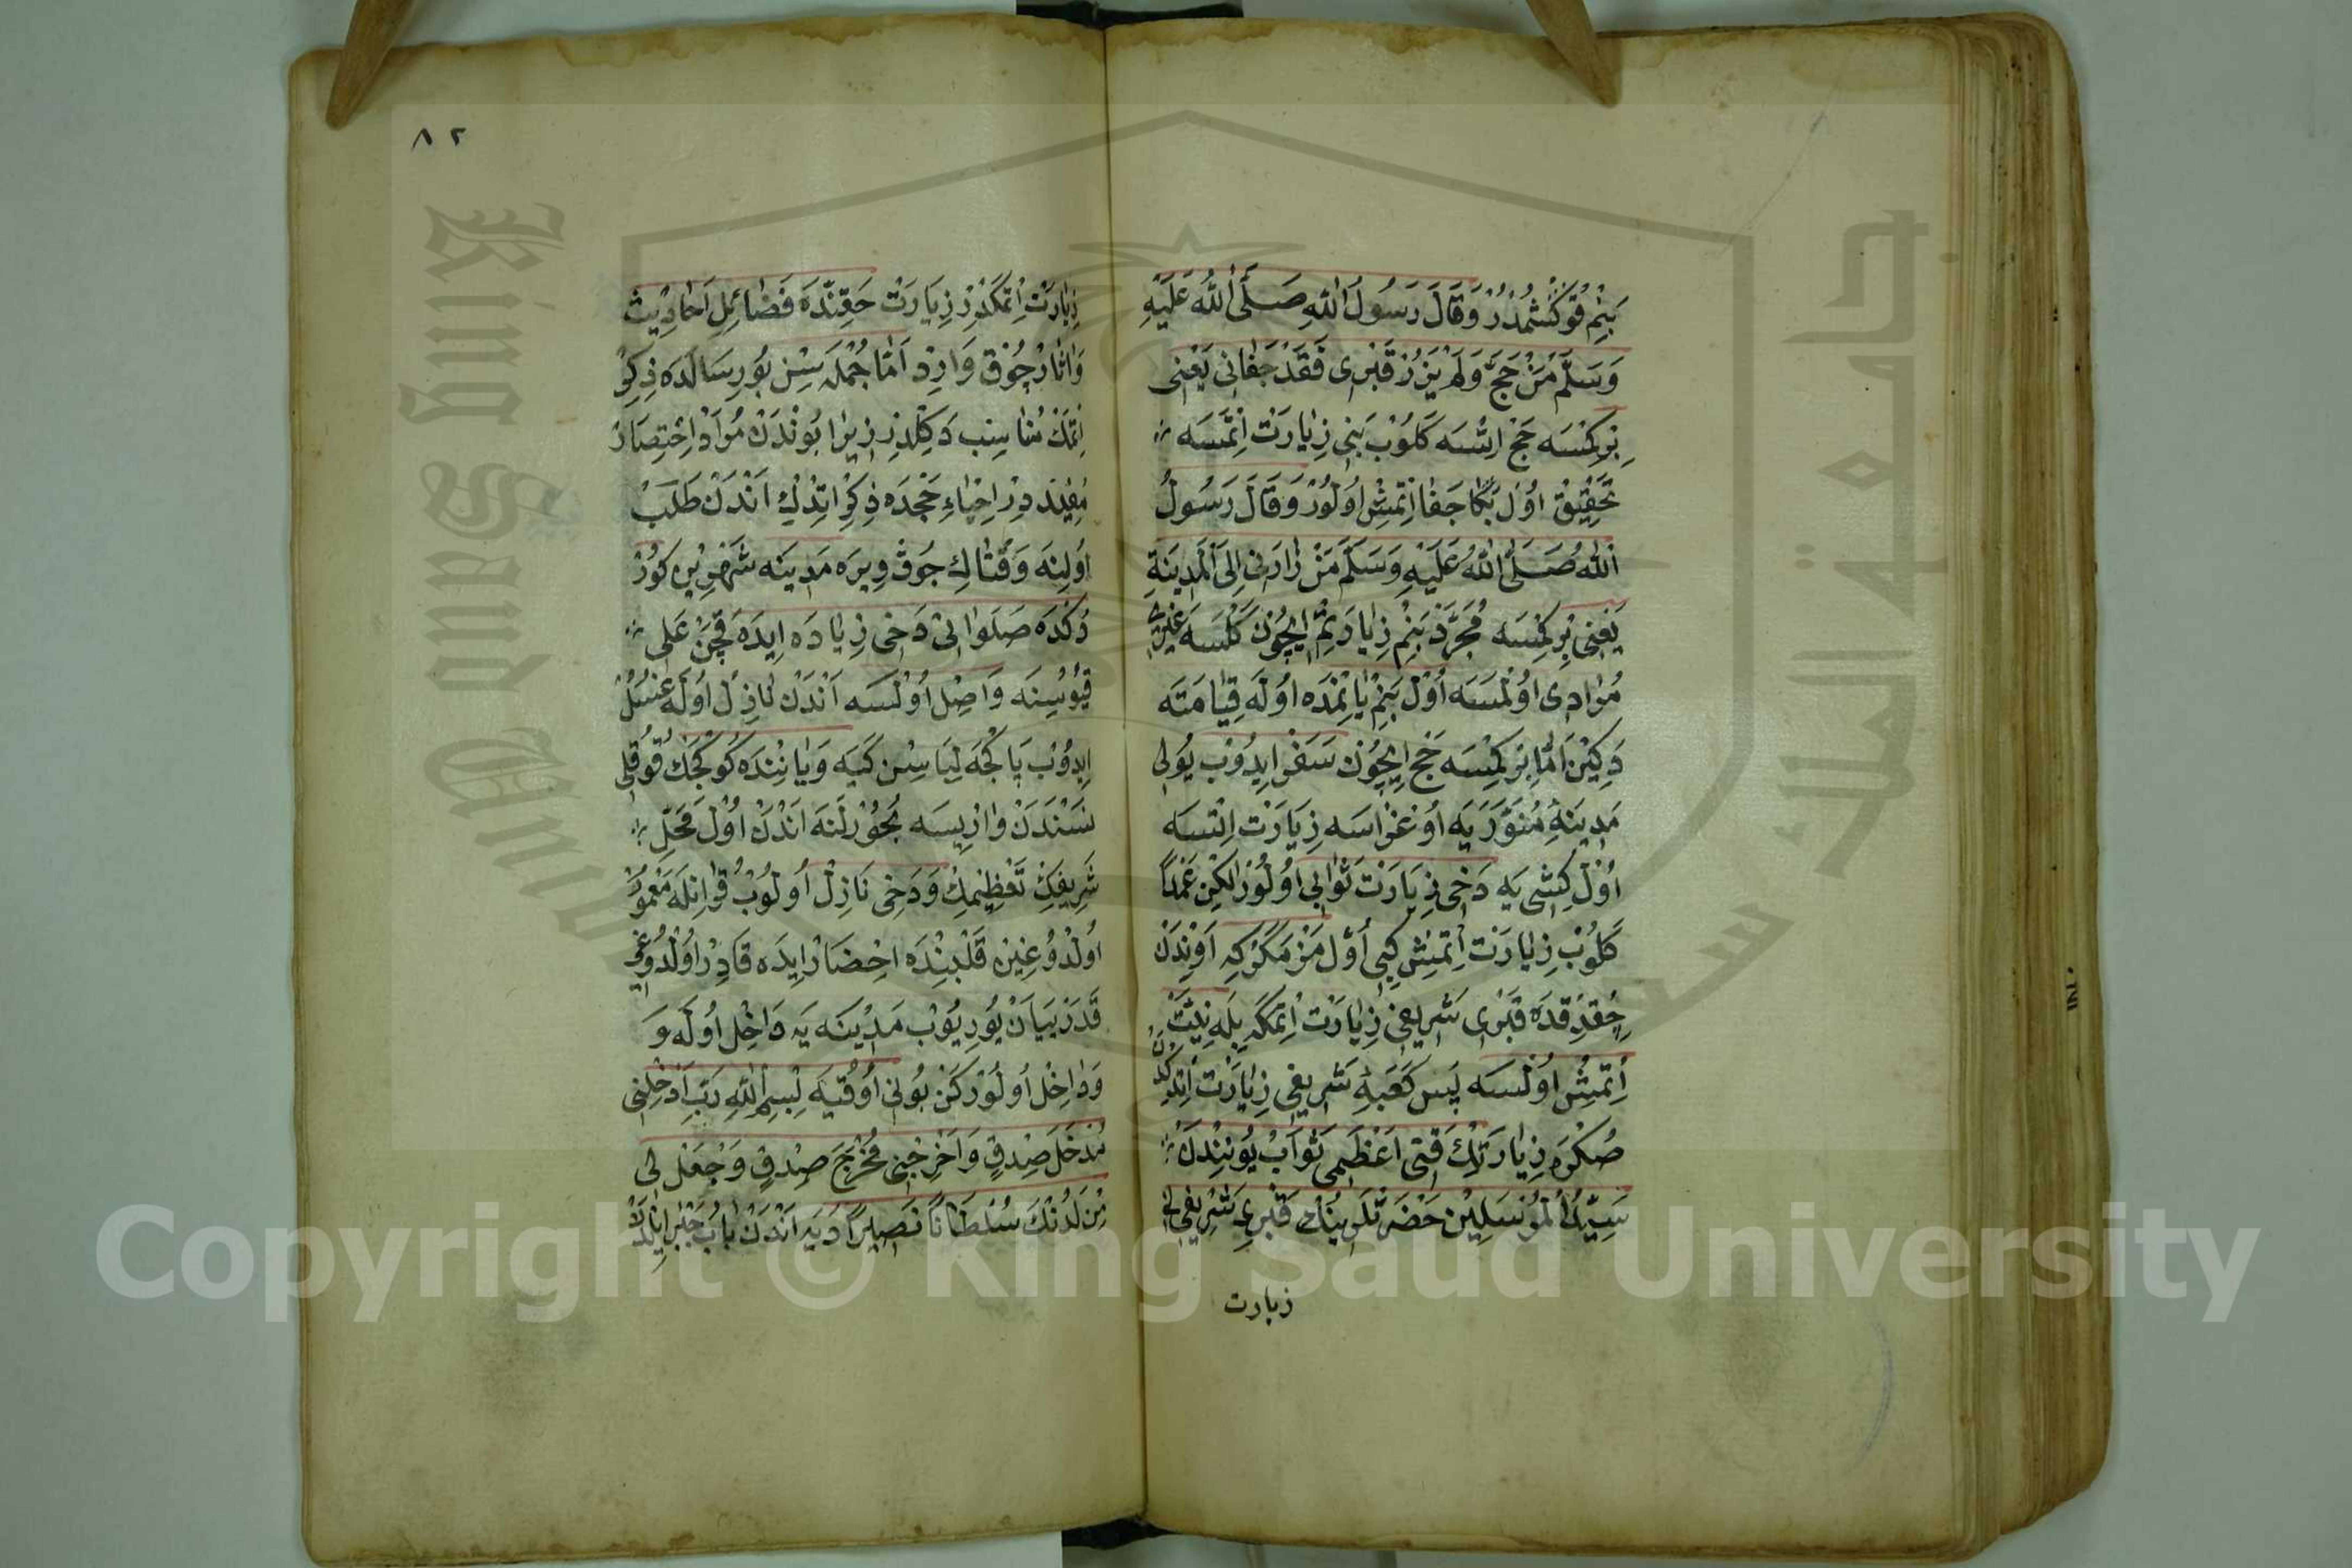 بَنِمْ قُوكْشُمْدُرْ وَقَالَ رَسُولُ اللّٰهِ صَلَّى اللّٰهُ عَلَيْهِ
وَسَلَّمَ مَنْ حَجَّ وَلَمْ يَزُرْ قَبْرِى فَقَدْ جَفَانِى يَعْنِى
بِرْكِمْسَه حَجْ اتْسَه كَلُوبْ بَنِى زِيَارَتْ اِتْمَسَه
تَحْقِيقْ اُولْ بَكَا جَفَا اِتْمِشْ اُولُورْ وَقَالَ رَسُولُ
اللّٰهِ صَلَّى اللّٰهُ عَلَيْهِ وَسَلَّمَ مَنْ زَارَنِى اِلَى الْمَدِينَةِ
يَعْنِى بِرْ كِمْسَه مُجَرَّدْ بَنِمْ زِيَارَتِمْ اِيچُونْ كَلْسَه غَيْرِى
مُرَادِى اُولْمَسَه اُولْ بَنِمْ يَانِمْدَه اُولَه قِيَامَتَه
دَكِينْ اَمَّا بِرْ كِمْسَه حَجْ اِيچُونْ سَفَرْ ايدُوبْ يُولِى
مَدِينَهٔ مُنَوَّرَيَه اُوغْرَاسَه زِيَارَتْ اِتْسَه
اُولْ كِشِى يَه دَخِى زِيَارَتْ ثَوَابِى اُولُورْ لَكِنْ عَمْدًا
كَلُوبْ زِيَارَتْ اِتْمِشْ كِبِى اُولْمَزْ مَكَرْ كِه اَوِنْدَنْ
چِقْدِقْدَه قَبْرِى شَرِيفِى زِيَارَتْ اِتْمَكَه بِلَه نِيَّتْ
اِتْمِشْ اُولْسَه پَسْ كَعْبَهٔ شَرِيفِى زِيَارَتْ اِتْدِكْدَنْ
صُكْرَه زِيَارَتْلَرِكْ قَتِى اَعْظَمِى ثَوَابْ يُونِنْدَنْ
سَيِّدُ الْمُرْسَلِينْ حَضْرَتْلَرِينُكْ قَبْرِى شَرِيفِنِى
زيارت
٨٢
زِيَارَتْ اِتْمَكْدِرْ زِيَارَتْ حَقِنْدَه فَضَائِلِ اَحَادِيثْ
وَاٰثَارْ چُوقْ وَارِدْ اَمَّا جُمْلَه سِنْ بُو رِسَالَدَه ذِكِرْ
اِتْمَكْ مُنَاسِبْ دَكِلْدِرْ زِيرَا بُونْدَنْ مُرَادْ اِخْتِصَارْ
مُفِيدْ دِرْ اِحْيَاءِ حَجْدَه ذِكِرْ اِتْدِكْ اَنْدَنْ طَلَبْ
اُولِنَه وَقْتَاكِه جُوقْ وِيرَه مَدِينَه شَهْرِينْ كُورْ
دُكْدَه صَلَوَاتِى دَخِى زِيَادَه اِيدَه قَچَنْ عَلِى
قَيُوسِينَه وَاصِلْ اُولْسَه اَنْدَنْ نَازِلْ اُولَه غُسُلْ
اِيدُوبْ پَاكْجَه لِبَاسِنْ كَيَه وَيَانِنْدَه كُوكْچَكْ قُوقُلِى
نَسْنَدَنْ وَارِيسَه بَخُورْلَنَه اَنْدَنْ اُولْ مَحَلِّ
شَرِيفِكْ تَعْظِيمِكْ وَدَخِى نَازِلْ اُولُوبْ قُرْاٰنِلَه مَعْمُورْ
اُولْدُوغِينْ قَلْبِنْدَه اِحْضَارْ اِيدَه قَادِرْ اُولْدُوغِى
قَدَرْ يَيَانْ يُورِيُوبْ مَدِينَه يَه دَاخِلْ اُولَه وَ
وَدَاخِلْ اُولُورْكَنْ بُونِى اُوقُيَه بِسْمِ اللّٰهِ رَبِّ اَدْخِلْنِى
مُدْخَلَ صِدْقٍ وَاَخْرِجْنِى مُخْرَجَ صِدْقٍ وَجْعَلْ لِى
مِنْ لَدُنْكَ سُلْطَانًا نَصِيرًا دِيَه اَنْدَنْ بَابِ جَبْرَائِيلْدَنْ